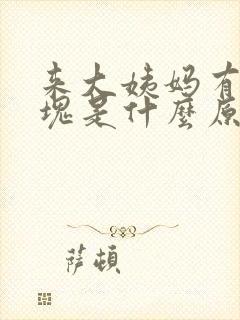 来大姨妈有
块是什麼原
萨顿